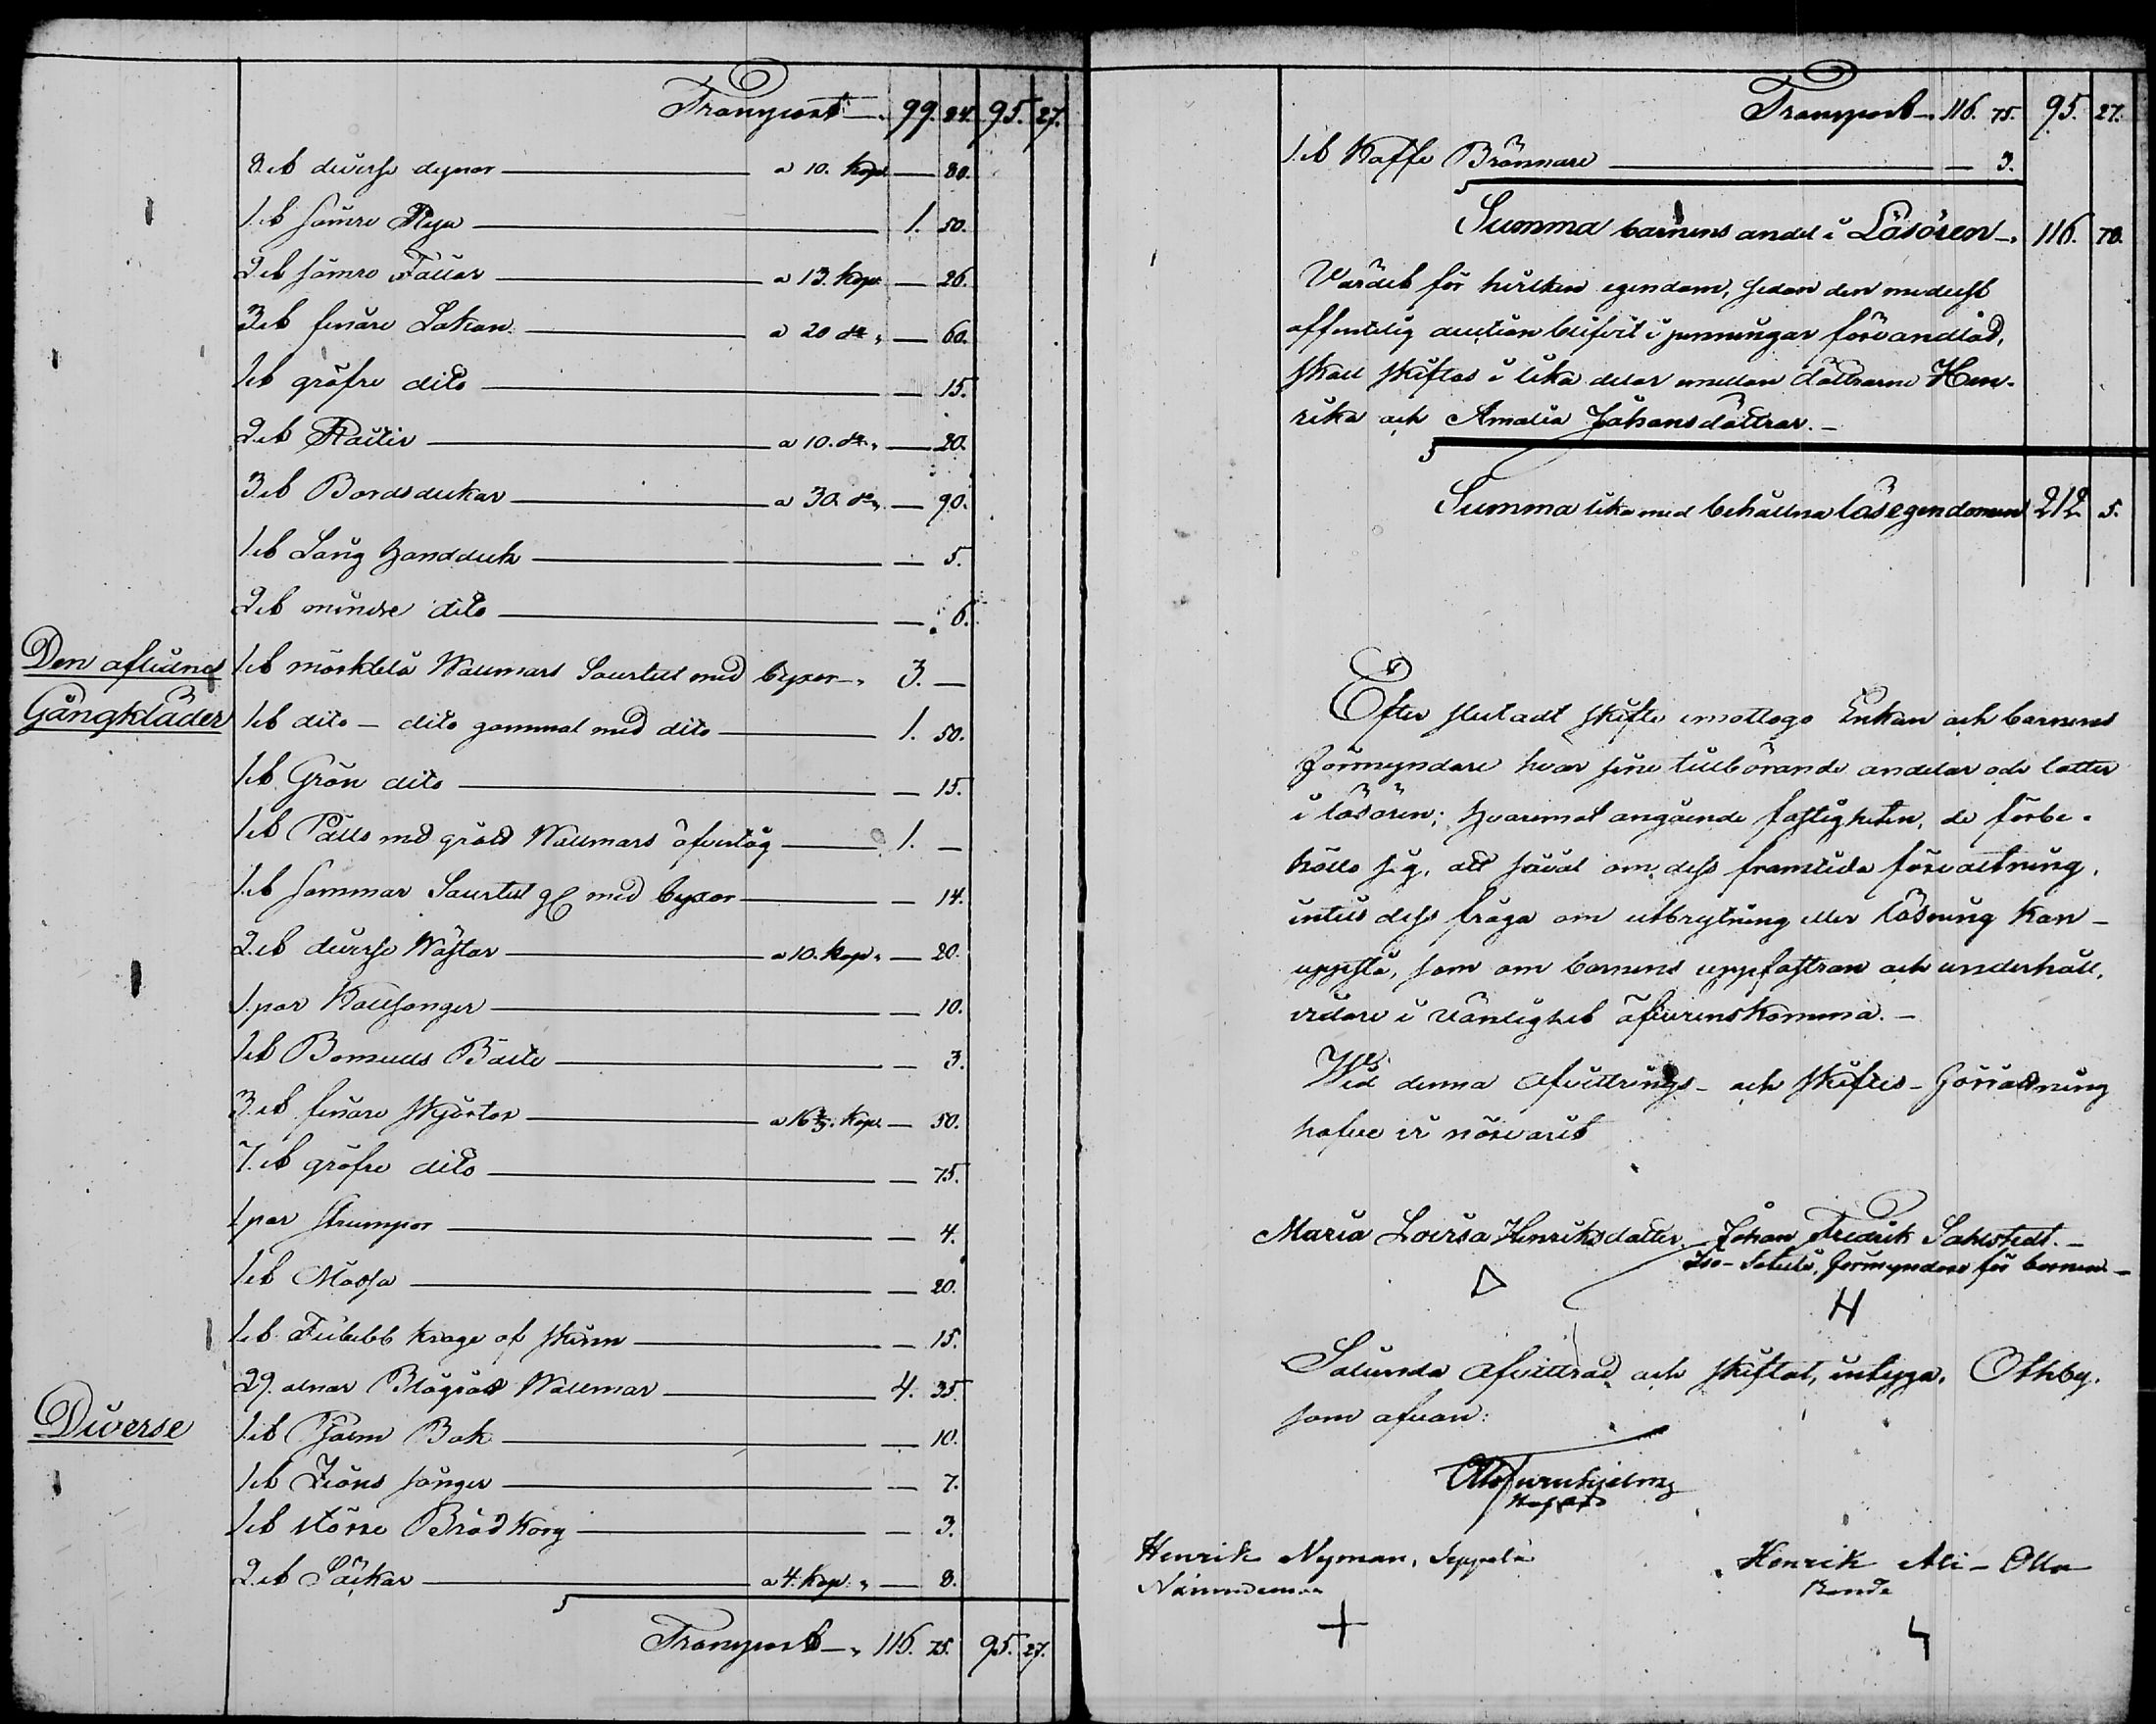 Transport 99. 24. 95. 27.
8. st diverse dynor a 10. Kop. 80.
1. st sämre Rya 1. 50.
2. st sämre Fällar a 13. Kop. 26.
3. st finare Lakan a 20 do 60.
1. st gröfre dito 15.
2. st a 10. do 20.
3. st Bordsdukar a 30. do 90.
1. st Lång handduk 5.
2. st mindre dito 6.
Den aflidnes 1. st mörkblå Wallmars Surtut med byxor 3. —
Gångkläder 1. st dito - dito gammal med dito 1. 50.
1. st Grön dito 15.
1. st Päls med gråd Wallmars öfvertog 1. —
1. st sommar Surtut med byxor 14.
2. st diverse Wästar a 10. Kop. 20.
1. par 10.
1. st Bomulls Bälte 3.
3. st finare skjortor a 16 2/3. Kop. 50.
7. st gröfre dito 75.
1 par strumpor 4.
1. st Mössa 20.
1. st krage af skinn 15.
29. alnar Blågråd Wallmar 4. 35.
Diverse 1. st Psalm Bok 10.
1. st Zions sånger 7.
1. st större Brödkorg 3.
2. st Säckar a 4. Kop. 8.
Transport 116. 75. 95. 27.
Transport 116. 75. 95. 27.
1. st Kaffe Brännare 3.
Summa barnens andel i Lösören 116. 78.
Värdet för hvilken egendom, sedan den medelst
offentelig auction blifvit i penningar förvandlad,
skall skiftas i lika delar emellan döttrarne Hen-
rika och Amalia Johansdöttrar.-
Summa lika med behållna lösegendomen 212 5.
Efter slutadt skifte emottogo Enkan och barnens
Förmyndare hvar sine tillbörande andelar och lotter
i lösören; hvaremot angående fastigheten, de förbe-
höllo sig, att såväl om dess framtida förvaltning,
intills dess fråga om utbrytning eller lösning kan
uppstå, som om barnens uppfostran och underhåll,
vidare i vänlighet öfverenskomma.-
Wid denna Afvittrings- och skiftes-Förrättning
hafve vi närvarit
Maria Lovisa Henriksdotter. Johan Fredrik Sahlstedt.-
Iso-Setälä, förmyndare för barnen-
H
Sålunda afvittrad och skiftat, intyga. Othby.
som ofvan:
Otto Furuhjelm
Henrik Nyman, Seppälä Henrik Ali-Olla
Nämndeman Bonde